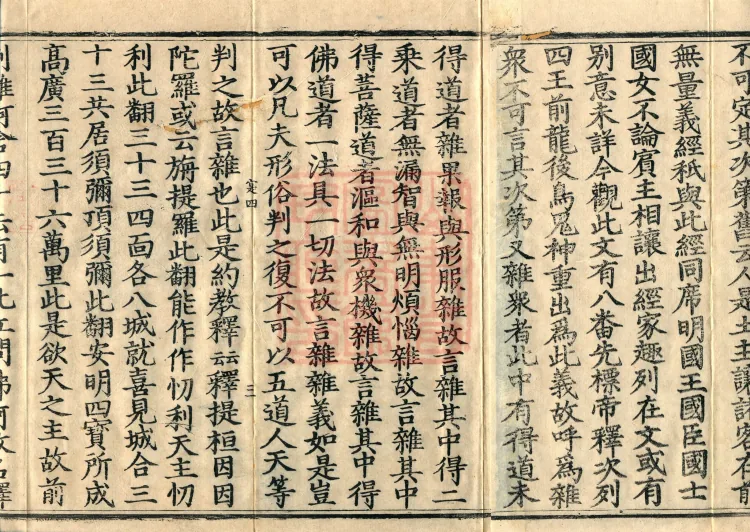 無量義經秖與此經同席明國王國臣國士
國女不論賓主相讓出經家趣列在文或有
別意未詳今觀此文有八番先標帝釋次列
四王前龍後鳥鬼神重出爲此義故呼爲雜
衆不可言其次第又雜衆者此中有得道未
得道者雜果報與形服雜故言雜其中得二
乘道者無漏智與無明煩惱雜故言雜其中
得菩薩道者漚和與衆機雜故言雜其中得
佛道者一法具一切法故言雜雜義如是豈
可以凡夫形俗判之復不可以五道人天等
寔四
三
判之故言雜也此是約教釋云釋提桓因因
陀羅或云旃提羅此翻能作作忉利天主忉
利此翻三十三四面各八城就喜見城合三
十三共居須彌頂須彌此翻安明四寶所成
高廣三百三十六萬里此是欲天之主故前